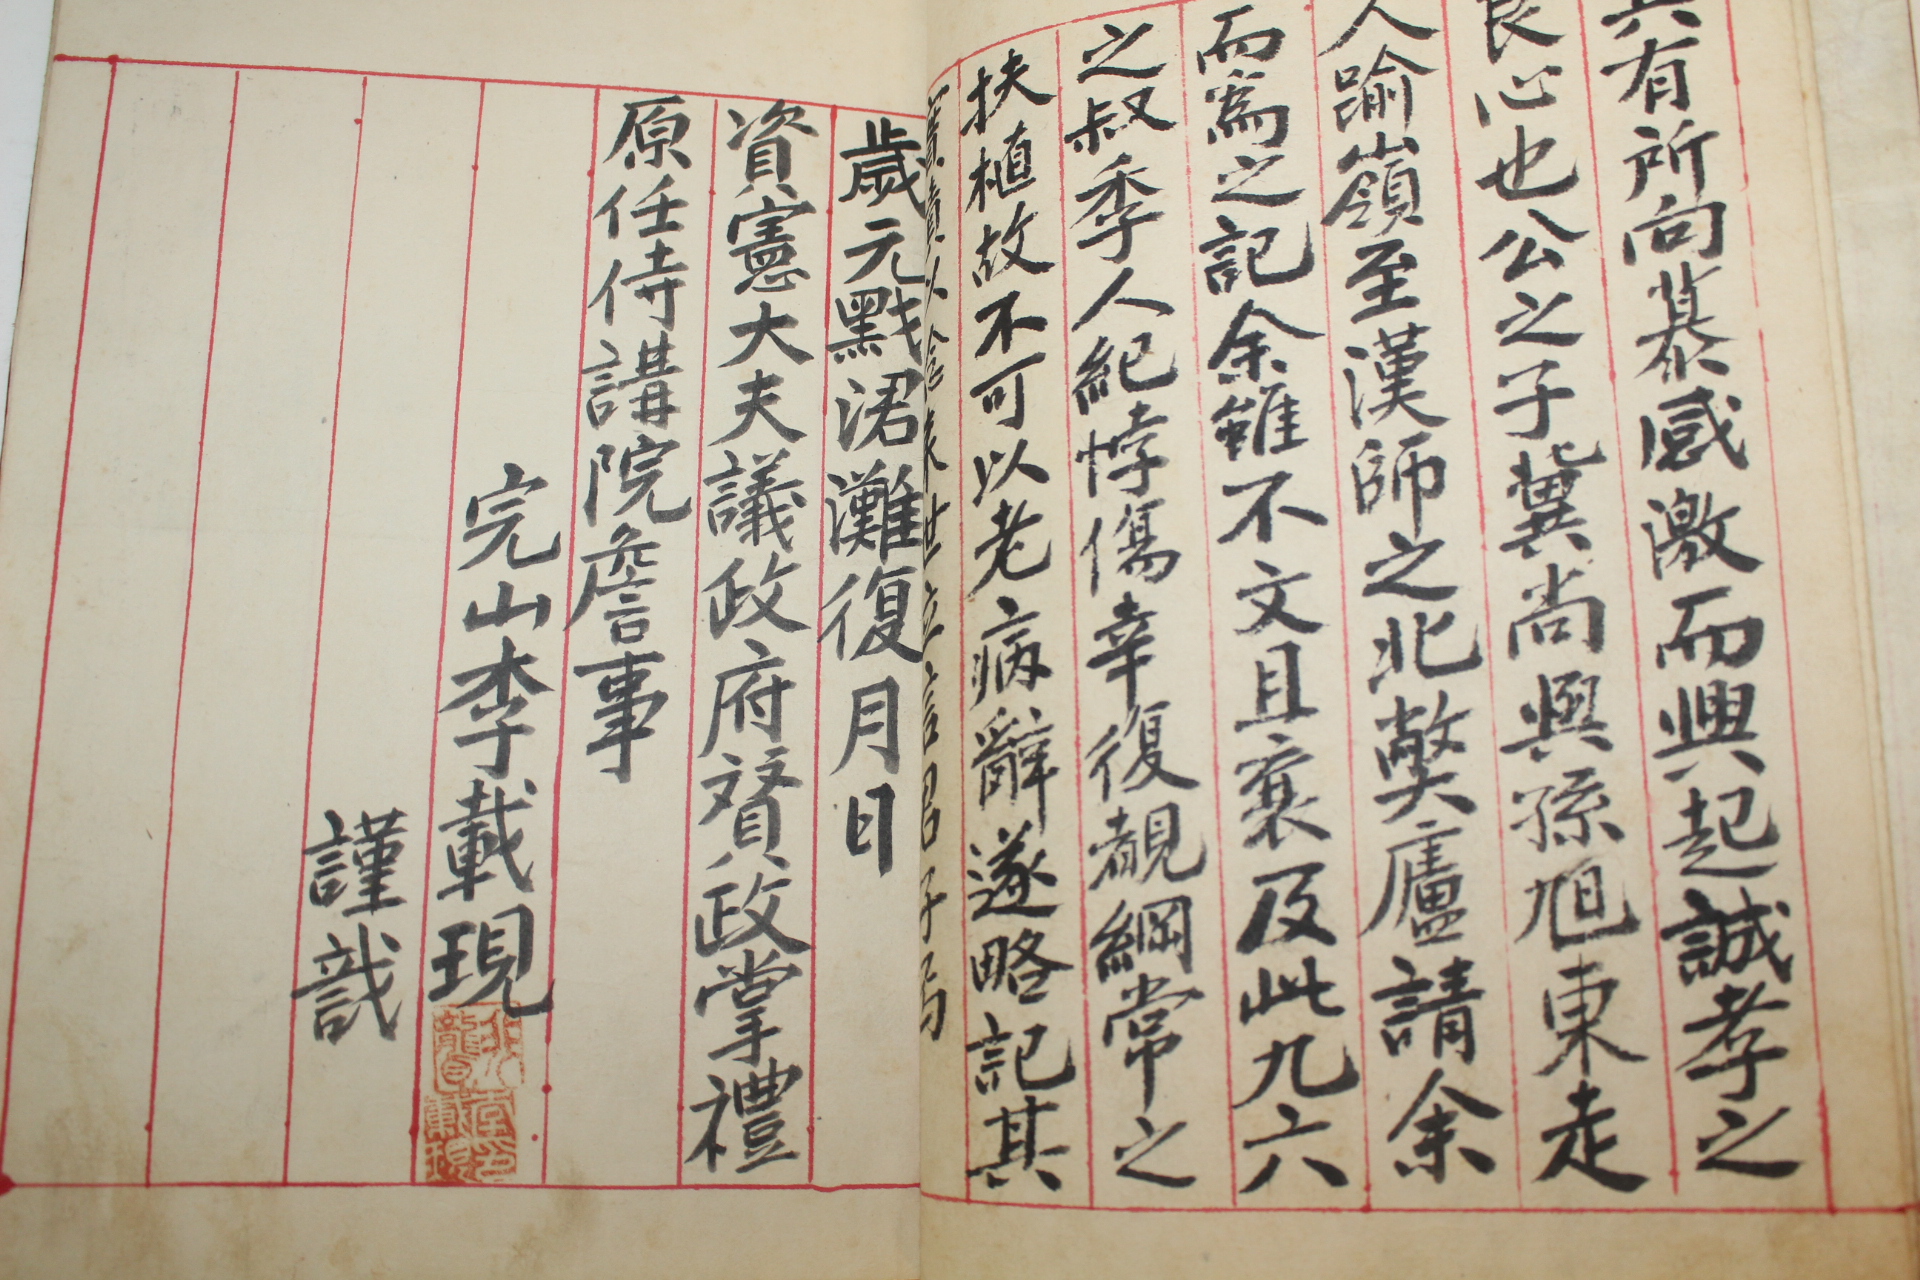 共有所向慕感激而興起誠孝之
良心也公之子冀尚與孫旭東走
人踰嶺至漢師之北獘廬請余
而爲之記余雖不文且衰及此九六
之叔季人紀悖傷幸復覩綱常之
扶植故不可以老病辭遂略記其
以 世 君子
歲元黓涒灘復月日
資憲大夫議政府贊政掌禮
原任侍講院詹事
完山李載現
謹識
載現